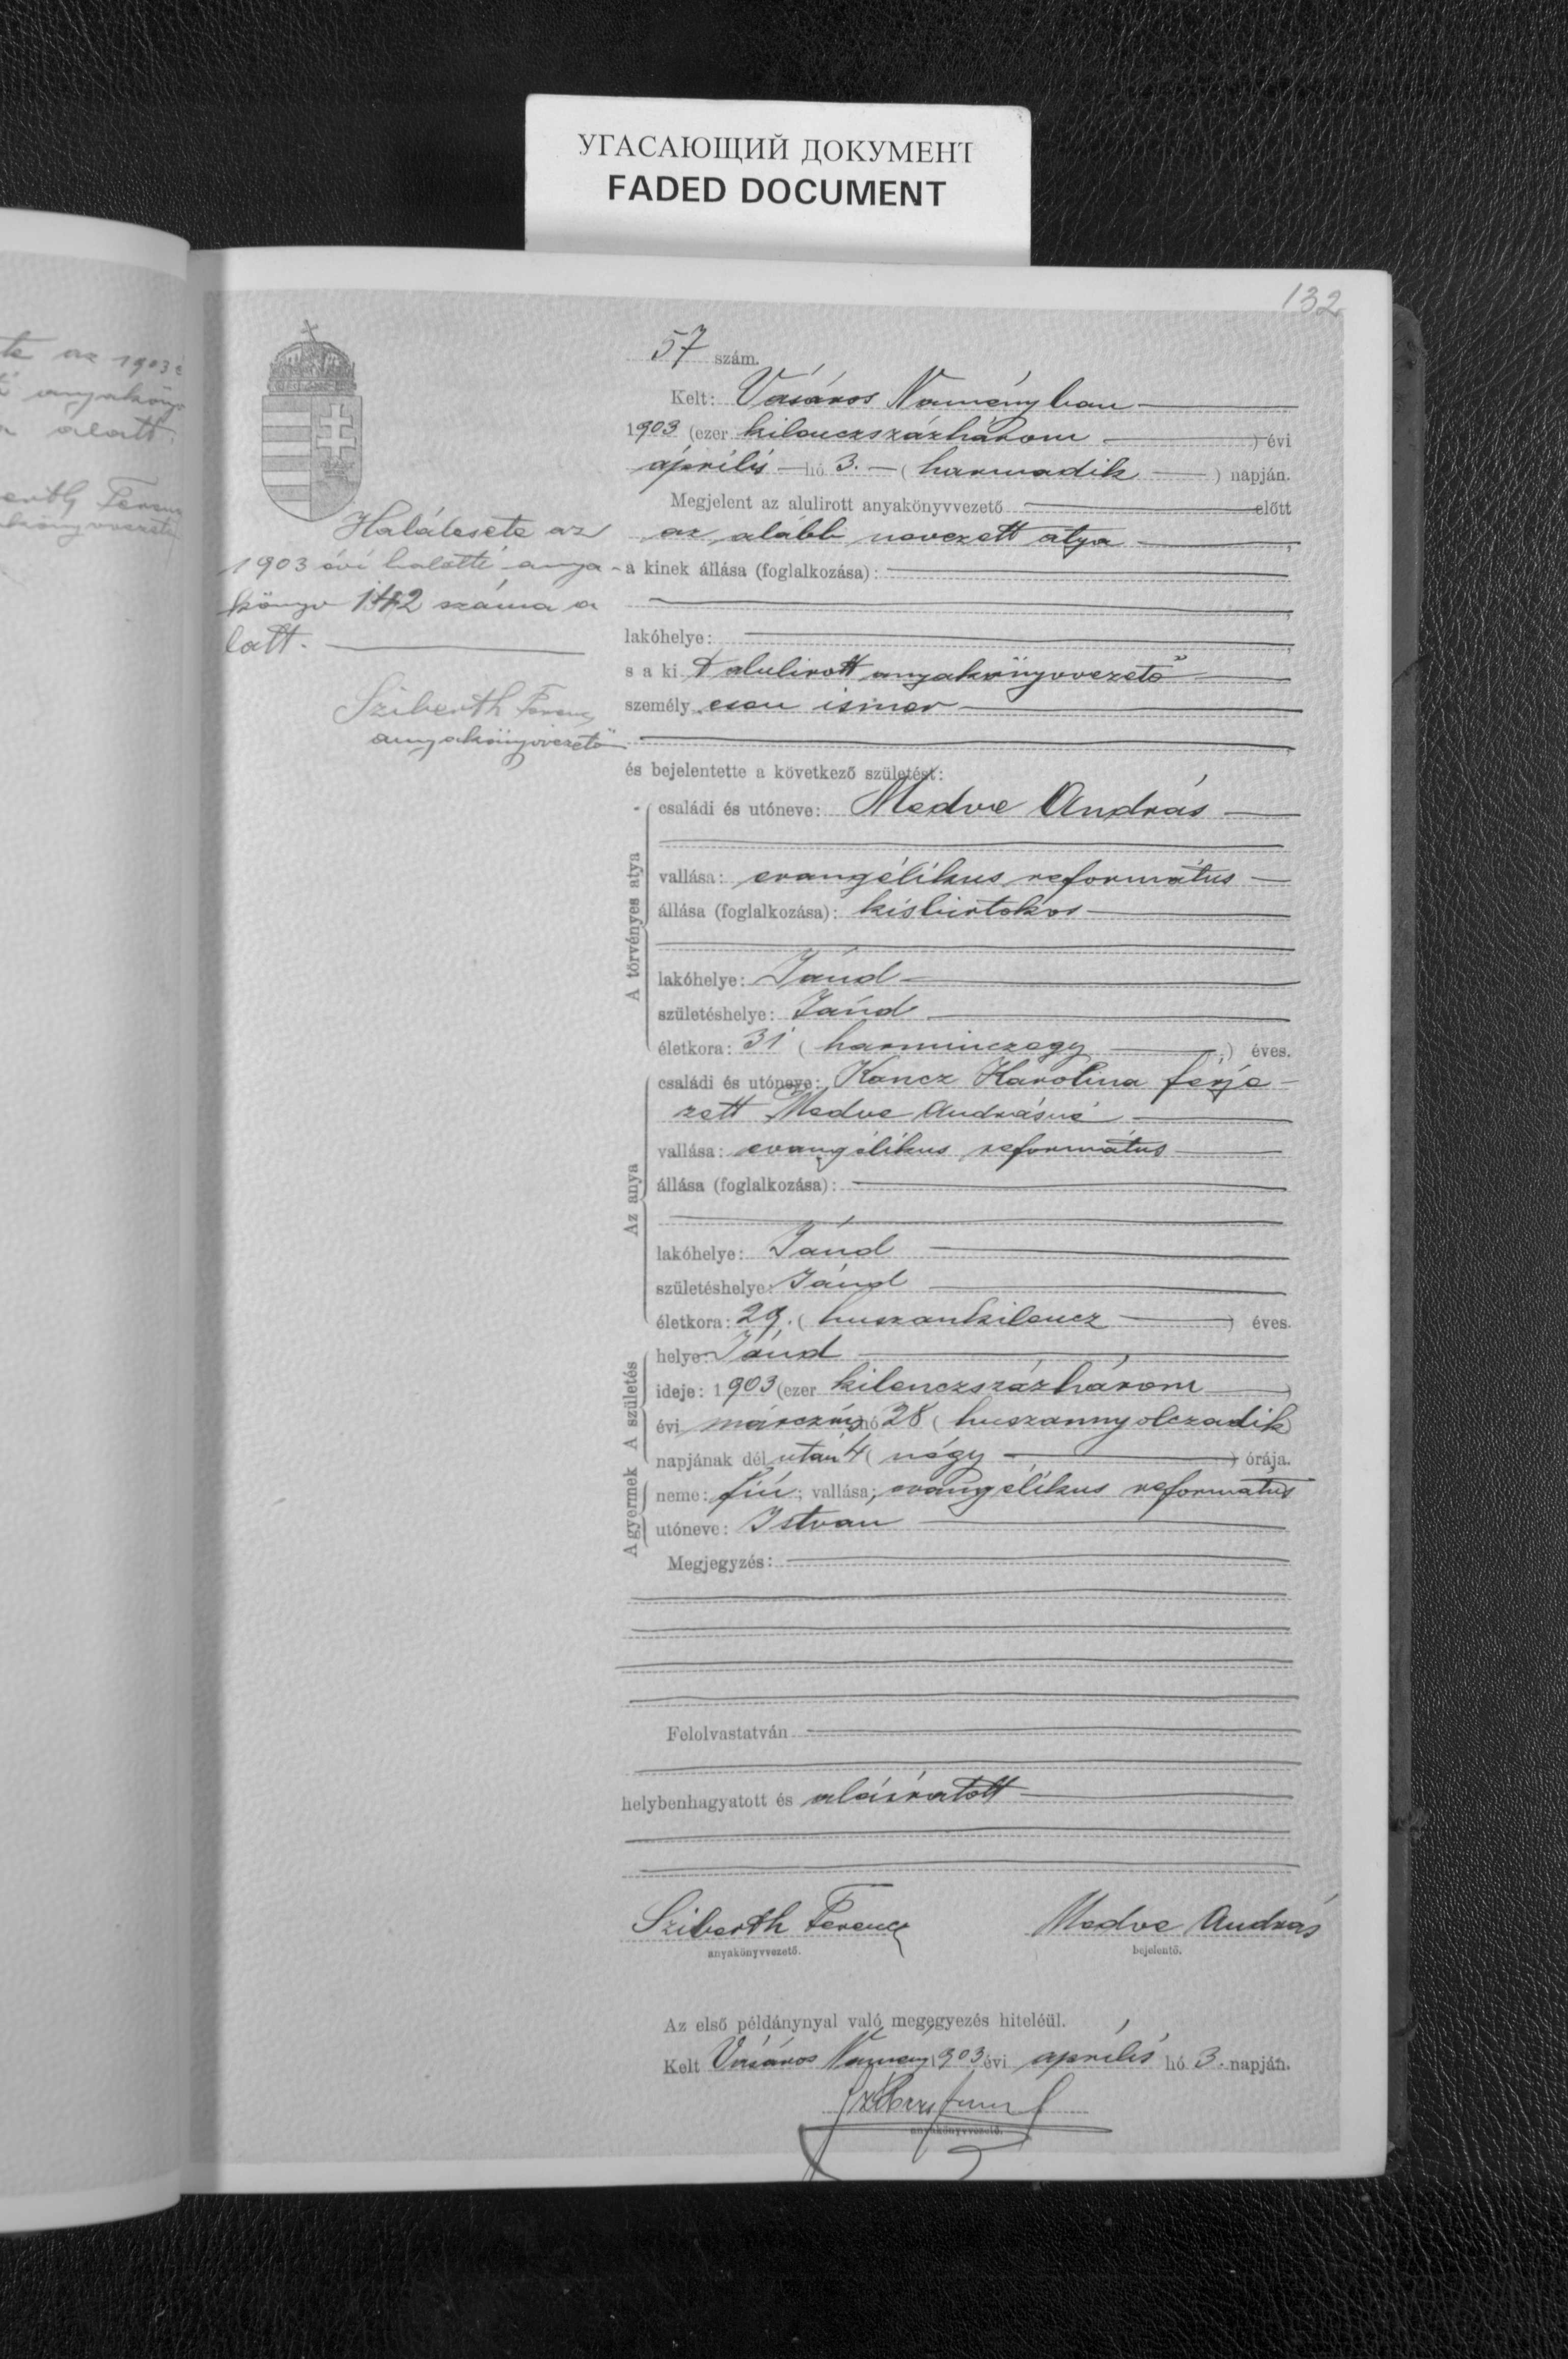 УГАСАЮЩИЙ ДОКУМЕНТ
FADED DOCUMENT
132
te az 1903
anyaköny
alatt.
erth Ferenc
könyvvezető
57 szám.
Kelt: Vásáros Naményban
1903 (ezer kilenczszázhárom ) évi
április hó 3. (harmadik ) napján.
Megjelent az alulirott anyakönyvvezető előtt
az alább nevezett atya ,
a kinek állása (foglalkozása):
lakóhelye:
s a ki t alulirott anyakönyvvezető
személy esen ismer
és bejelentette a következő születést:
Halálesete az
1903 évi halotti anya-
könyv 142 száma a
latt.
Sziberth Ferenc
anyakönyvvezető
A törvényes atya
családi és utóneve: Medve András
vallása: evangélikus református
állása (foglalkozása): kisbirtokos
lakóhelye: Jánd
születéshelye: Jánd
életkora: 31 (harminczegy ) éves.
Az anya
családi és utóneve: Koncz Karolina férje-
zett Medve Andrásné
vallása: evangélikus református
állása (foglalkozása):
lakóhelye: Jánd
születéshelye: Jánd
életkora: 29. (huszonkilencz ) éves.
A születés
helye: Jánd
ideje: 1903 (ezer kilenczszázhárom )
évi márczius hó 28 (huszonnyolczadik)
napjának dél után 4 (négy ) órája.
A gyermek
neme: fiú; vallása; evangélikus református
utóneve: István
Megjegyzés:
Felolvastatván
helybenhagyatott és aláíratott
Sziberth Ferencz Medve András
anyakönyvvezető. bejelentő.
Az első példánynyal való megegyezés hiteléül.
Kelt Vásáros Namény 1903 évi április hó 3. napján.
anyakönyvvezető.